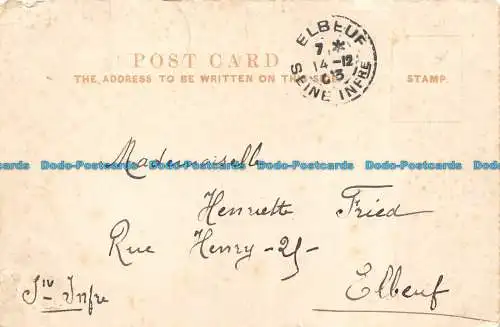 ELBEUF
7 *
14 -12
03
SEINE INFRE
POST CARD
THE ADDRESS TO BE WRITTEN ON THE SIDE
STAMP.
Mademoiselle
Dodo-Postcards Dodo-Postcards Dodo-Postcards Dodo-Postcards
Henriette Fried
Rue Henry - 25 -
Dodo-Postcards Dodo-Postcards Dodo-Postcards Dodo-Postcards
Elbeuf
Infre